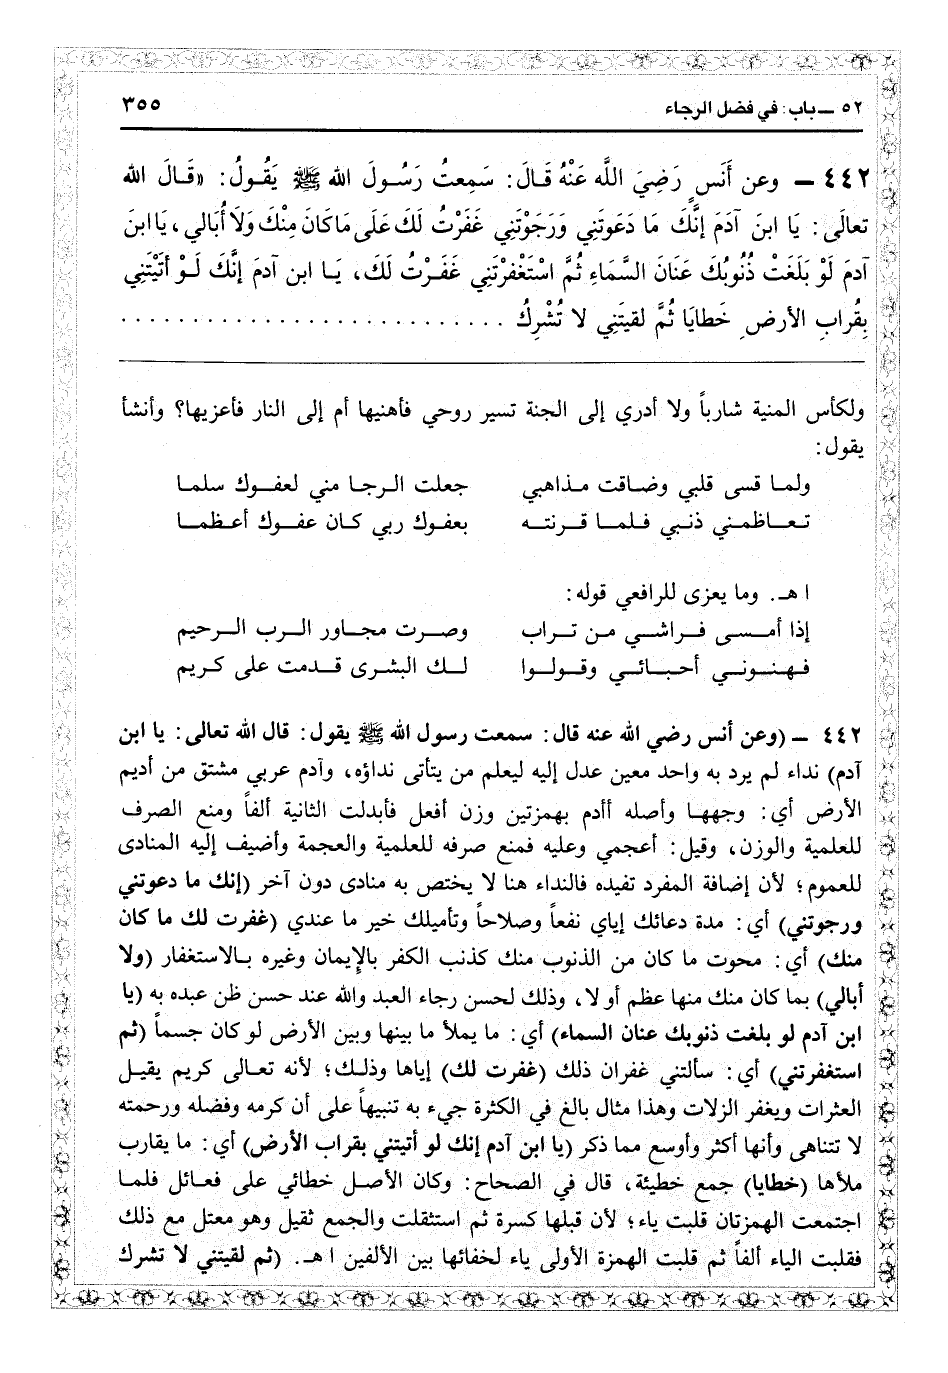 ٥٢ ـ باب: في فضل الرجاء ٣٥٥
٤٤٢ ـ وعن أَنَسٍ رَضِيَ اللَّه عَنْهُ قَالَ: سَمِعتُ رَسُولَ الله ﷺ يَقُولُ: «قَالَ الله
تعالَى: يَا ابنَ آدَمَ إنَّكَ مَا دَعَوتَنِي وَرَجَوْتَنِي غَفَرْتُ لَكَ عَلَى مَا كَانَ مِنْكَ وَلَا أُبَالي، يَا ابنَ
آدمَ لَوْ بَلَغَتْ ذُنُوبُكَ عَنَانَ السَّمَاءِ ثُمَّ اسْتَغْفَرْتَنِي غَفَرْتُ لَكَ، يَا ابن آدمَ إنَّكَ لَوْ أَتَيْتَنِي
بِقُرابِ الأرضِ خَطايَا ثُمَّ لقيتَنِي لا تُشْرِكُ ..............................
ولكأس المنية شارباً ولا أدري إلى الجنة تسير روحي فأهنيها أم إلى النار فأعزيها؟ وأنشأ
يقول:
ولما قسى قلبي وضاقت مذاهبي جعلت الرجا مني لعفوك سلما
تعاظمني ذنبي فلما قرنته بعفوك ربي كان عفوك أعظما
ا هـ. وما يعزى للرافعي قوله:
إذا أمسى فراشي من تراب وصرت مجاور الرب الرحيم
فهنوني أحبائي وقولوا لك البشرى قدمت على كريم
٤٤٢ ـ (وعن أنس رضي الله عنه قال: سمعت رسول الله ﷺ يقول: قال الله تعالى: يا ابن
آدم) نداء لم يرد به واحد معين عدل إليه ليعلم من يتأتى نداؤه، وآدم عربي مشتق من أديم
الأرض أي: وجهها وأصله أأدم بهمزتين وزن أفعل فأبدلت الثانية ألفاً ومنع الصرف
للعلمية والوزن، وقيل: أعجمي وعليه فمنع صرفه للعلمية والعجمة وأضيف إليه المنادى
للعموم؛ لأن إضافة المفرد تفيده فالنداء هنا لا يختص به منادى دون آخر (إنك ما دعوتني
ورجوتني) أي: مدة دعائك إياي نفعاً وصلاحاً وتأميلك خير ما عندي (غفرت لك ما كان
منك) أي: محوت ما كان من الذنوب منك كذنب الكفر بالإيمان وغيره بالاستغفار (ولا
أبالي) بما كان منك منها عظم أو لا، وذلك لحسن رجاء العبد والله عند حسن ظن عبده به (يا
ابن آدم لو بلغت ذنوبك عنان السماء) أي: ما يملأ ما بينها وبين الأرض لو كان جسماً (ثم
استغفرتني) أي: سألتني غفران ذلك (غفرت لك) إياها وذلك؛ لأنه تعالى كريم يقيل
العثرات ويغفر الزلات وهذا مثال بالغ في الكثرة جيء به تنبيهاً على أن كرمه وفضله ورحمته
لا تتناهى وأنها أكثر وأوسع مما ذكر (يا ابن آدم إنك لو أتيتني بقراب الأرض) أي: ما يقارب
ملأها (خطايا) جمع خطيئة، قال في الصحاح: وكان الأصل خطائي على فعائل فلما
اجتمعت الهمزتان قلبت ياء؛ لأن قبلها كسرة ثم استثقلت والجمع ثقيل وهو معتل مع ذلك
فقلبت الياء ألفاً ثم قلبت الهمزة الأولى ياء لخفائها بين الألفين ا هـ. (ثم لقيتني لا تشرك